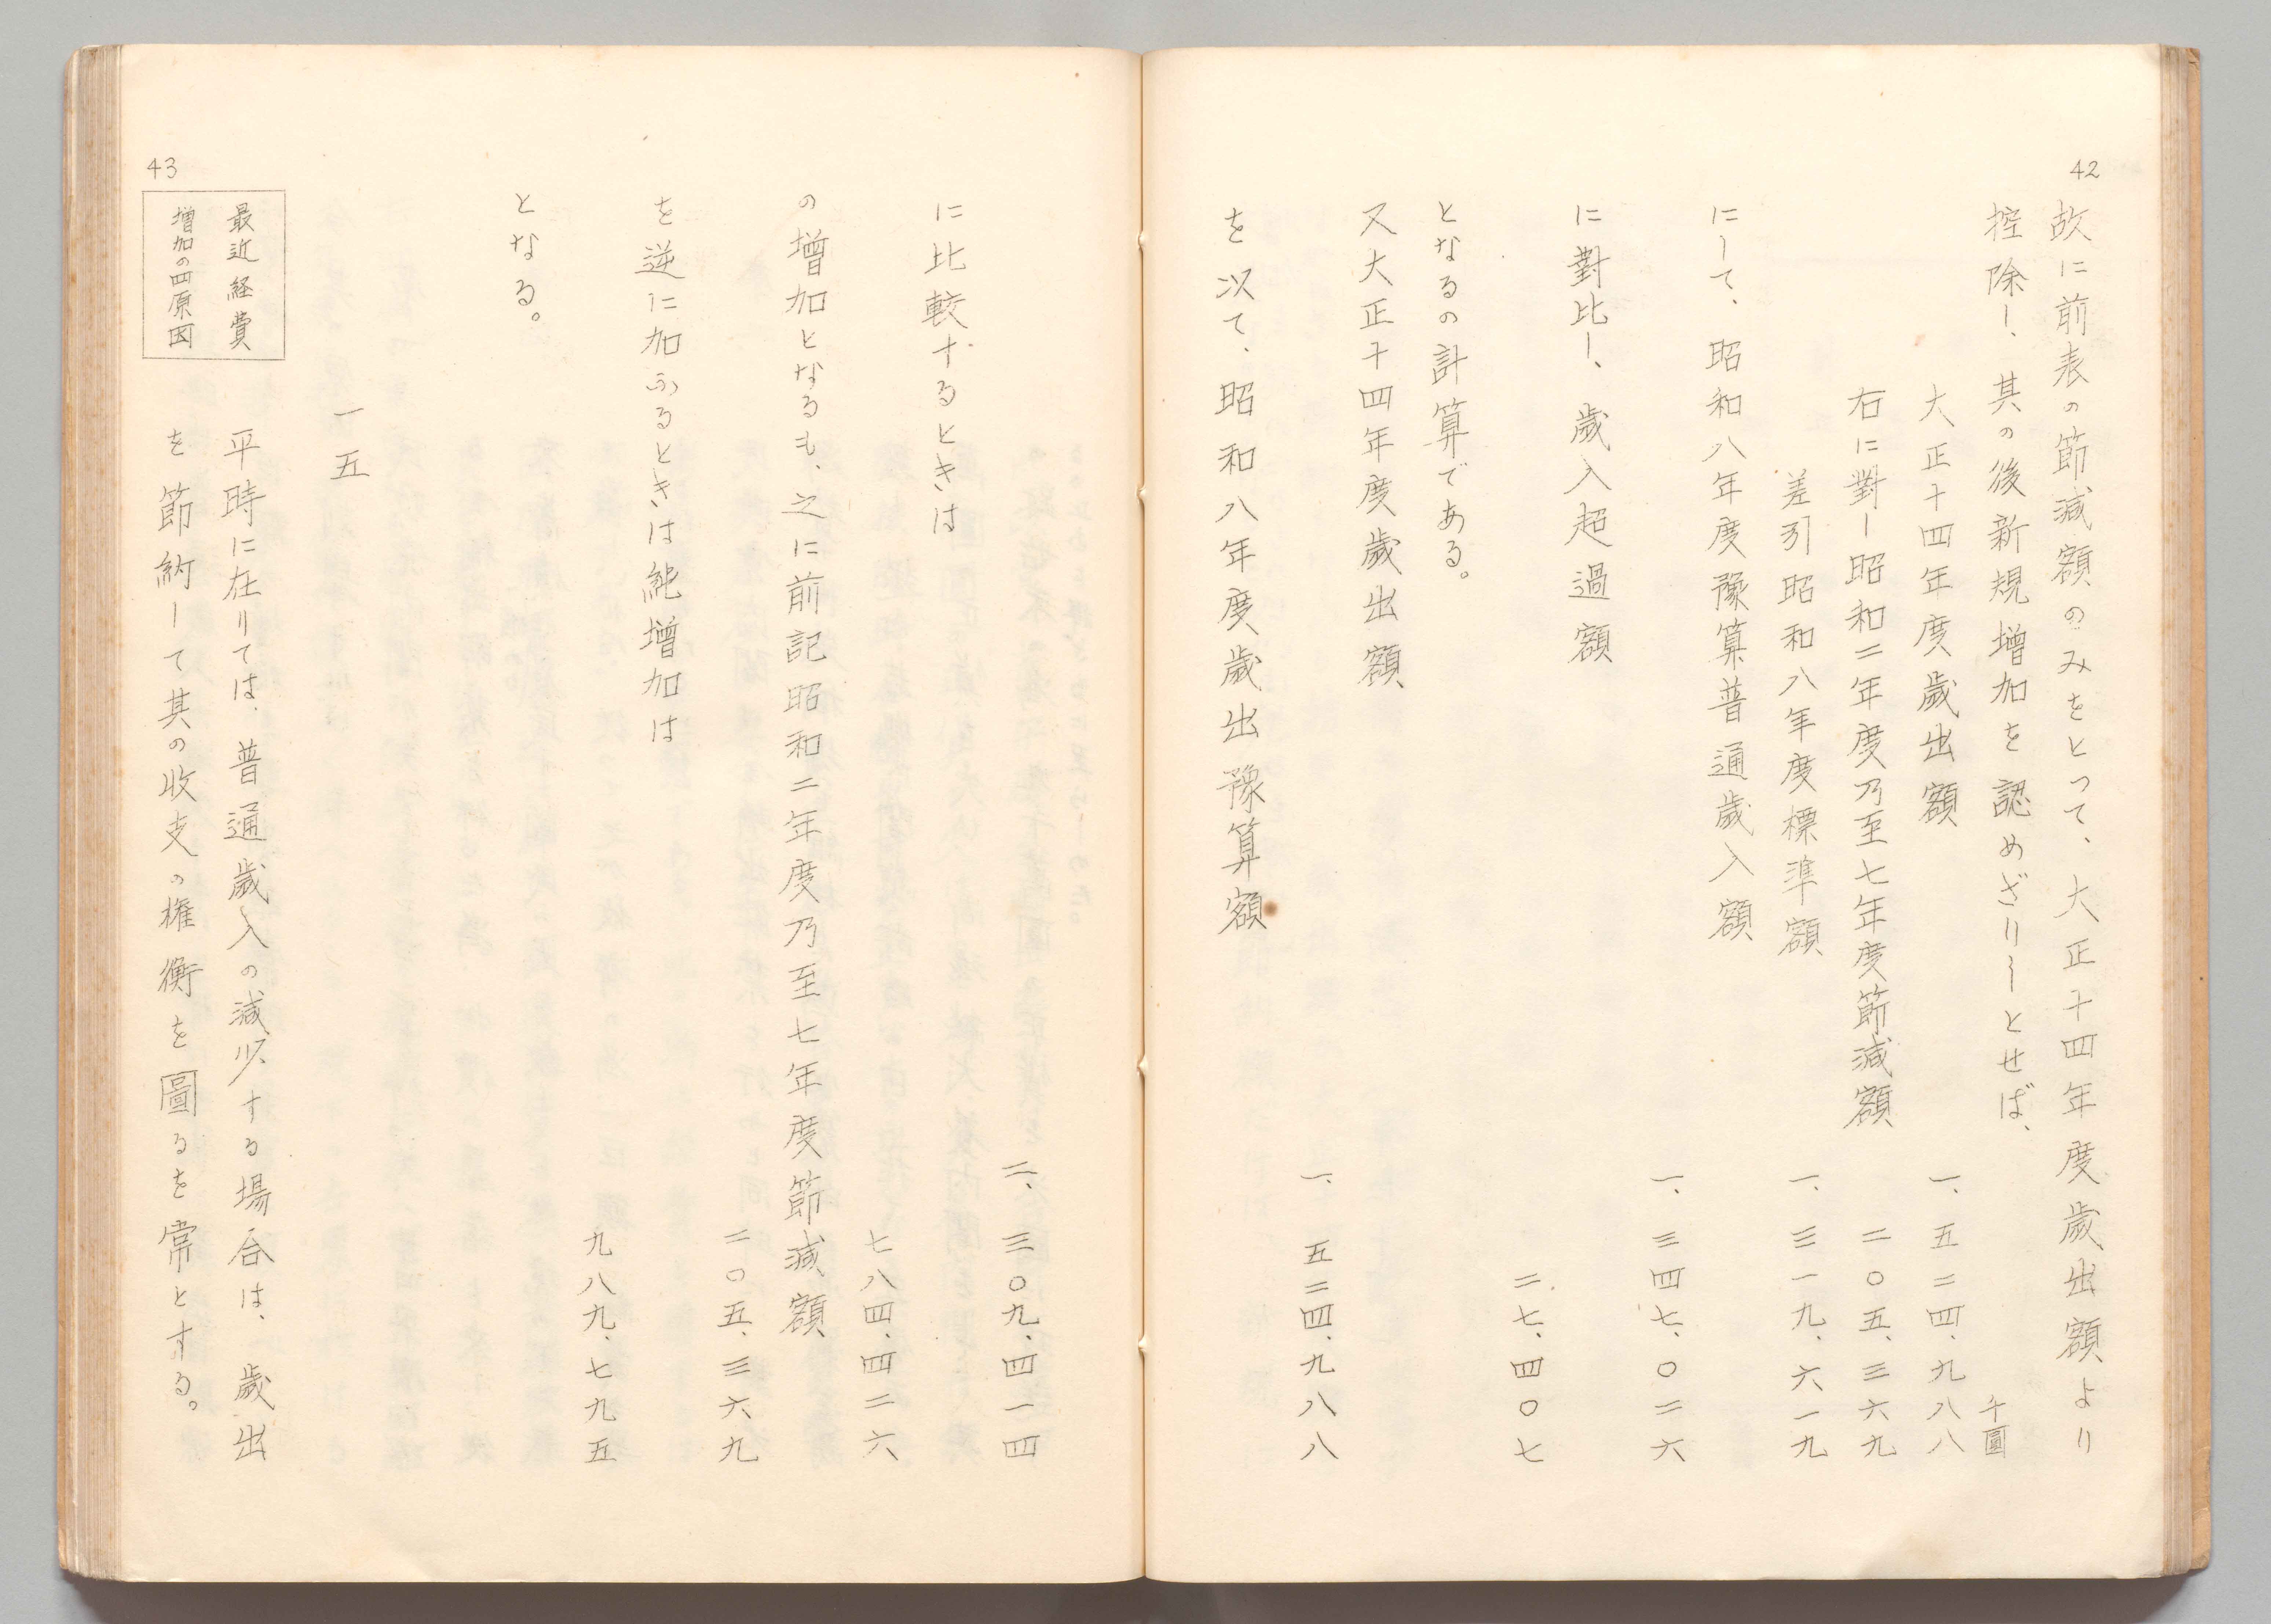 42
故に前表の節減額のみをとつて、大正十四年度歲出額より
控除し、其の後新規增加を認めざりしとせば、
千圓
大正十四年度歲出額 一、五二四、九八八
右に對し昭和二年度乃至七年度節減額 二〇五、三六九
差引昭和八年度標準額 一、三一九、六一九
にして、昭和八年度豫算普通歲入額
一、三四七、〇二六
に對比し、歲入超過額
二七、四〇七
となるの計算である。
又大正十四年度歲出額
一、五二四、九八八
を以て、昭和八年度歲出豫算額
二、三〇九、四一四
に比較するときは
七八四、四二六
の增加となるも、之に前記昭和二年度乃至七年度節減額
二〇五、三六九
を逆に加ふるときは純增加は
九八九、七九五
となる。
一五
43
最近経費
增加の四原因
平時に在りては、普通歲入の減少する場合は、歲出
を節約して其の收支の権衡を圖るを常とする。